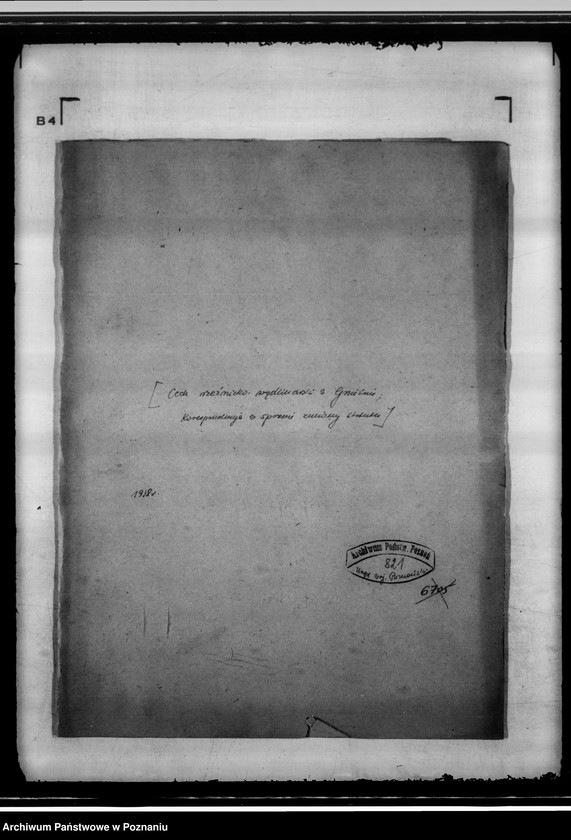 B4
[Cech rzeźnicko-wędliniarski w Gnieźnie,
Korespondencja w sprawie zmiany statutu]
1938r.
Archiwum Państw. Poznań
821
Urząd Woj. Poznański
6705
Archiwum Państwowe w Poznaniu